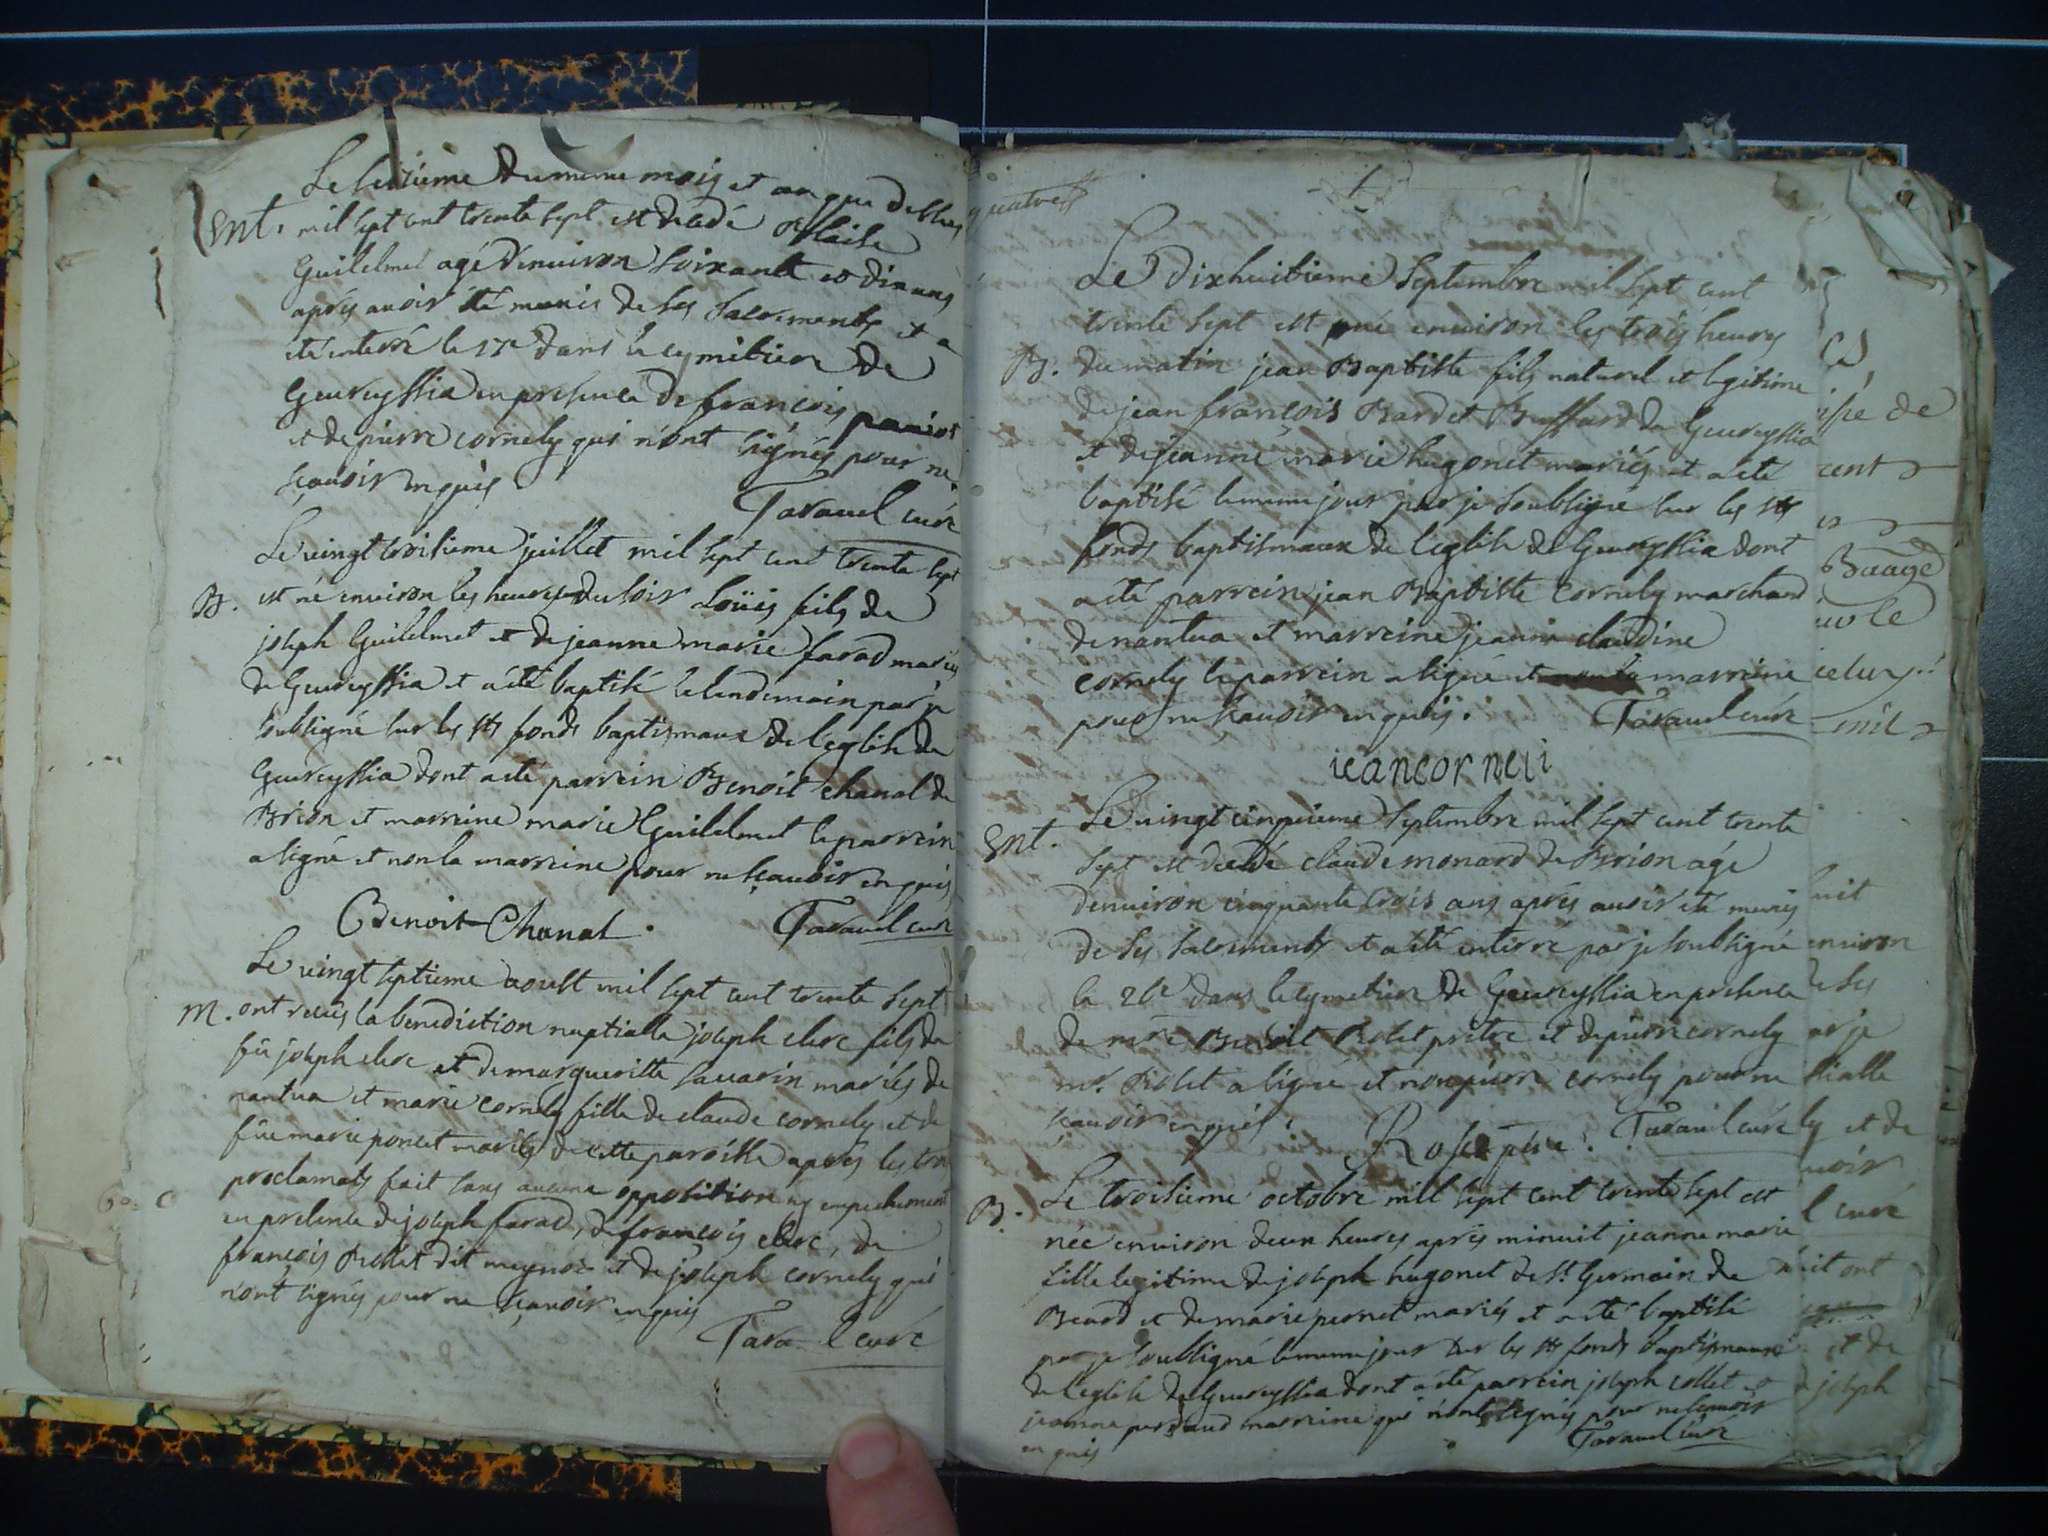 Le seizieme du meme mois et an que dessus
Ent. mil sept cent trente sept est decedé Blaise
Guilelmet agé denuiron soixante et dix ans
aprés auoir été munis de ses sacrements et a
eté enterré le 17e dans le cymitiere de
Geureyssia en presence de francois
et de pierre cornely qui n'ont signés pour ne
scauoir enquis
Tarauel curé
Le uingt troisieme juillet mil sept cent trente sept
B. est né enuiron les heures du soir Loüis fils de
joseph Guilelmet et de jeanne marie farod mariés
de Geureyssia et a été baptisé le lendemain par je
soubsigné sur les sts fonds baptismaux de l'eglise de
Geureyssia dont a eté parrein Benoit chanal de
Brion et marreine marie Guilelmet le parrein
a signé et non la marreine pour ne scauoir enquis
Benoit Chanal. Tarauel curé
Le uingt septieme aoust mil sept cent trente sept
M. ont receus la benediction nuptialle joseph clerc fils de
fû joseph clerc et de marguerite sauarin mariés de
nantua et marie cornely fille de claude cornely et de
fûe marie poncet mariés de cette paroisse apres les trois
proclamats fait sans aucune opposition ny empechement
en presence de joseph farod, de françois clerc, de
francois Rollet dit et de joseph cornely qui
n'ont signés pour ne scauoir enquis
Tarauel curé
quatre
Le dixhuitieme septembre mil sept cent
trente sept est né enuiron les trois heures
B. du matin jean Baptiste fils naturel et legitime
de jean françois Bardet Buffard de Geureyssia
et de jeanne marie hugonet mariés et a eté
baptisé le meme jour par je soubsigné sur les sts
fonds baptismaux de l'eglise de Geureyssia dont
a eté parrein jean Baptiste cornely marchand
de nantua et marreine jeanne claudine
cornely le parrein a signé et non la marreine
pour ne scauoir enquis. Tarauel curé
jean corneli
Le uingt cinquieme septembre mil sept cent trente
Ent. sept est decedé claude monard de Brion agé
denuiron cinquante trois ans aprés auoir eté munis
de ses sacrements et a eté enterré par je soubsigné
le 26e dans le cymetiere de Geureyssia en presence
de mre Benoit Rolet prêtre et de pierre cornely
mr. Rolet a signé et non pierre cornely pour ne
scauoir enquis.
Tarauel curé
B. Le troisieme octobre mil sept cent trente sept est
née enuiron deux heures aprés minuit jeanne marie
fille legitime de joseph hugonet de St Germain de
Beard et de marie pernet mariés et a eté baptisé
par je soubsigné le meme jour sur les sts fonds baptismaux
de l'eglise de Geureyssia dont a eté parrein joseph collet et
jeanne marreine qui n'ont signés pour ne scauoir
enquis Tarauel curé